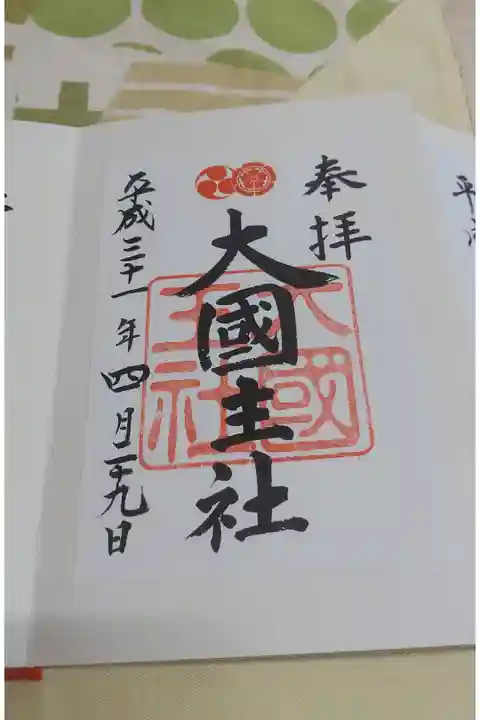 奉拝
大國主社
大國主社
平成三十一年四月二十九日